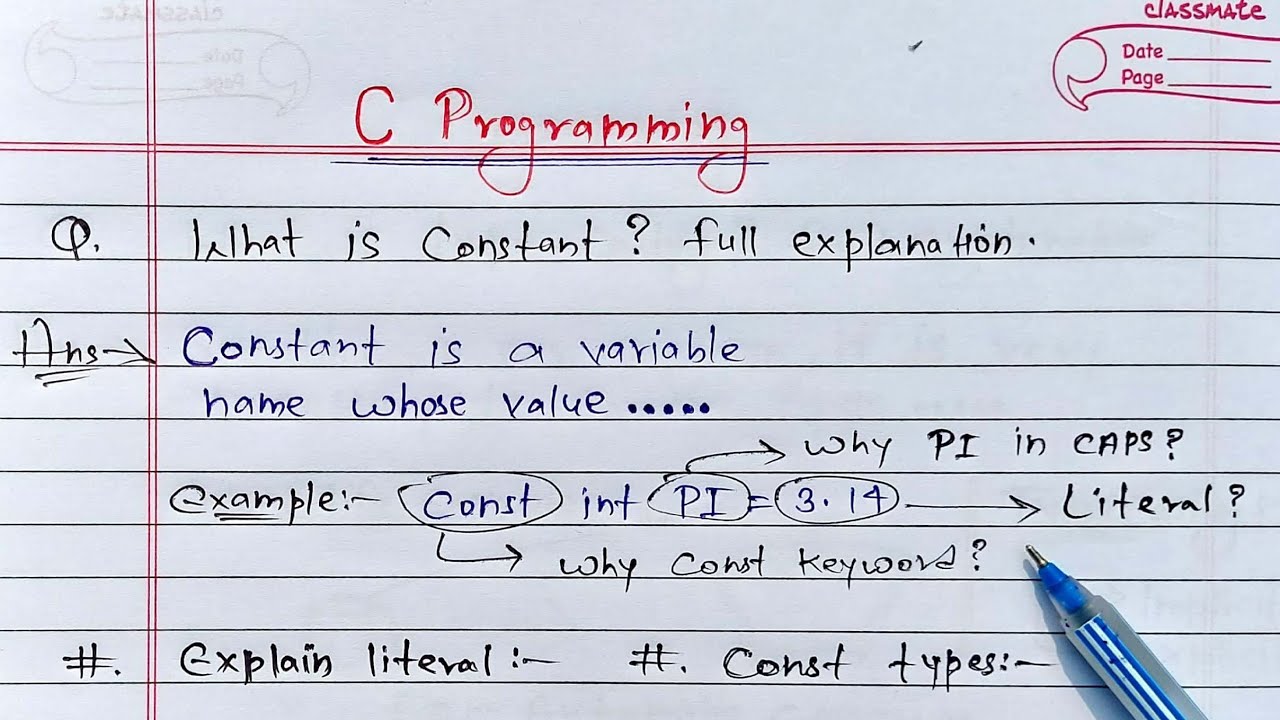 classmate
Date
Page
C Programming
Q. What is Constant? full explanation.
Ans→ Constant is a variable
name whose value .....
→ why PI in CAPS?
Example:- Const int PI = 3.14 → Literal?
→ why const keyword?
#. Explain literal:- #. Const types:-